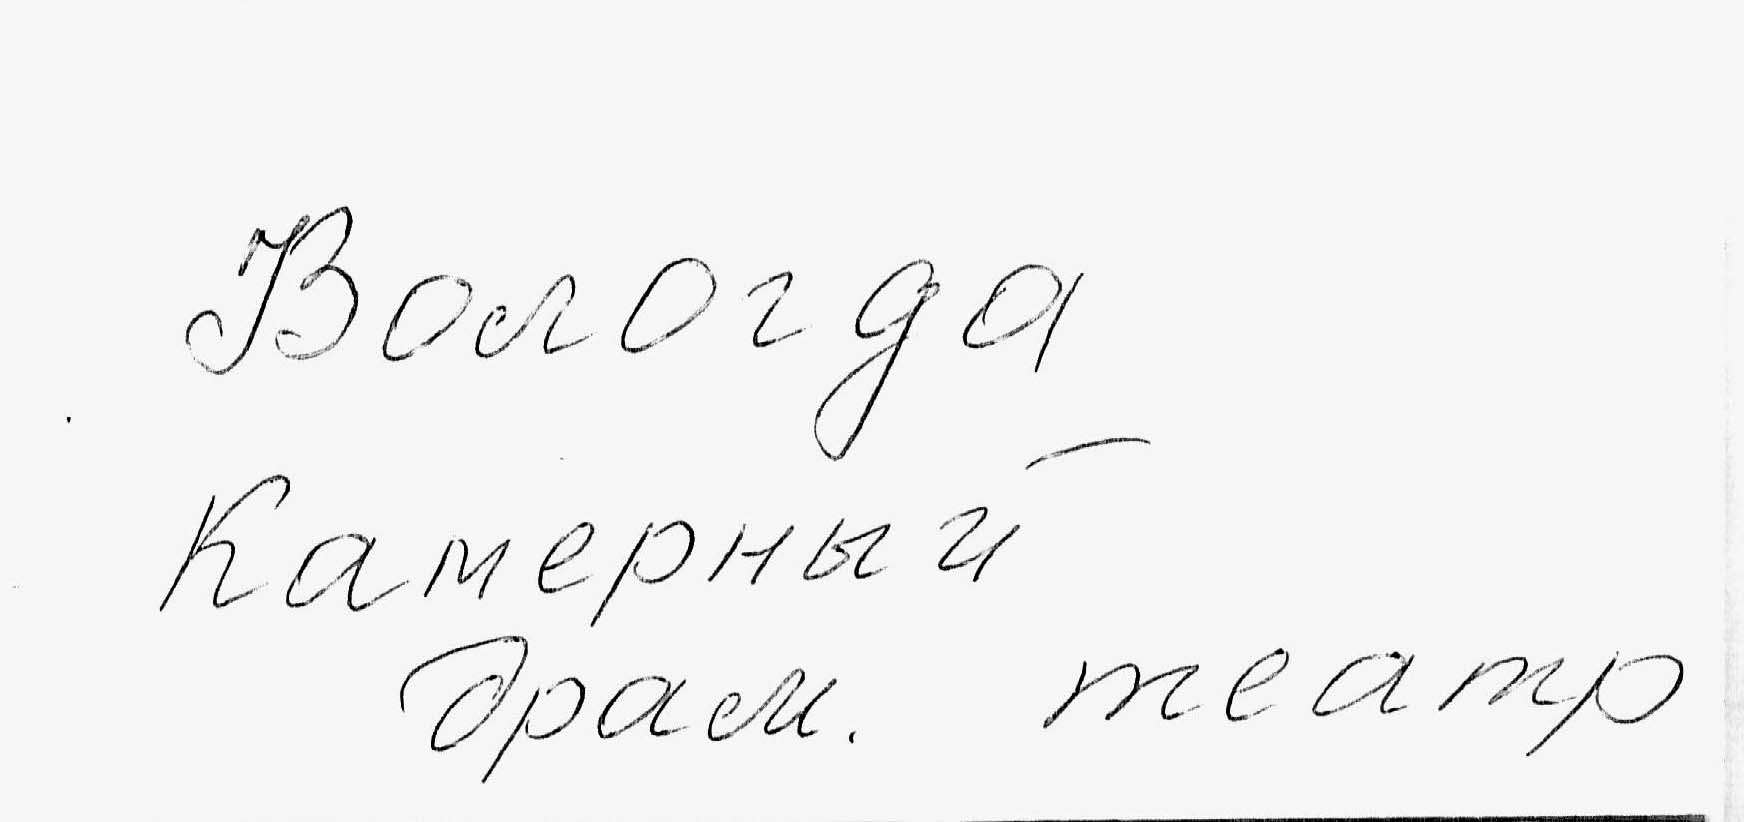 Вологда
Камерный
драм. театр